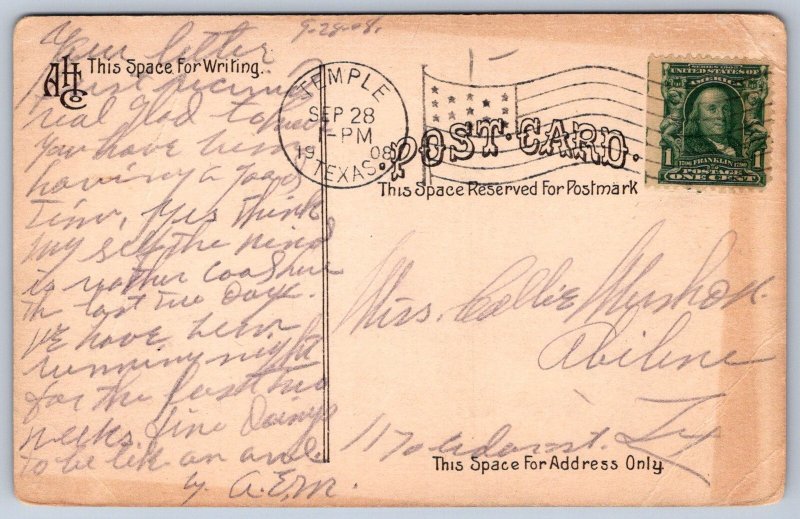 9-28-08.
Your letter
AHCo This Space For Writing.
Just received
real glad to hear
you have been
having a good
time, Yes think
myself the wind
is rather cool here
the last two days.
We have been
running night
for the last two
weeks, fine doings
to be like an owl.
by A.E.M.
TEMPLE
SEP 28
-PM
1908
TEXAS
POST-CARD.
This Space Reserved For Postmark
SERIES 1902
UNITED STATES OF
AMERICA
1 FRANKLIN 1
POSTAGE
ONE CENT
Miss. Callie
Abilene
117 st. Tex
This Space For Address Only.